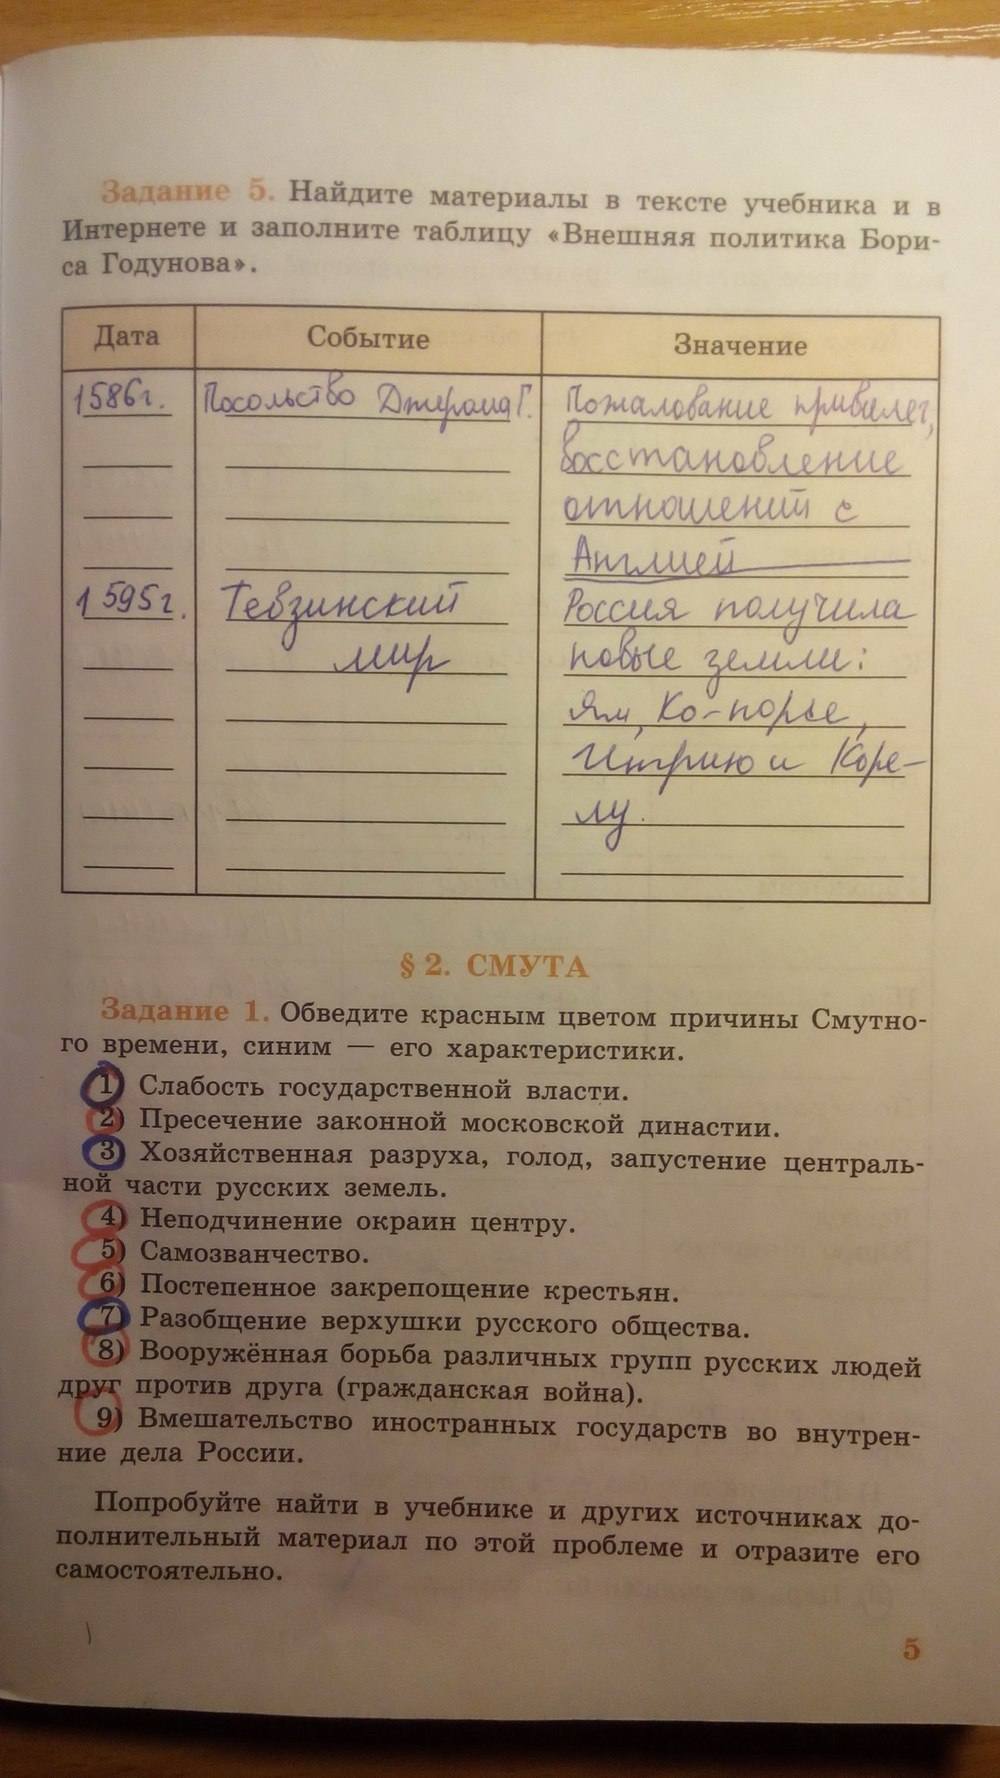 Задание 5. Найдите материалы в тексте учебника и в
Интернете и заполните таблицу «Внешняя политика Бори-
са Годунова».
Дата
Событие
Значение
1586г.
Посольство Джерома Г.
Пожалование привилег,
восстановление
отношений с
Англией
1595г.
Тевзинский
мир
Россия получила
новые земли:
Ям, Ко-порье,
Интрию и Коре-
лу.
§ 2. СМУТА
Задание 1. Обведите красным цветом причины Смутно-
го времени, синим — его характеристики.
1) Слабость государственной власти.
2) Пресечение законной московской династии.
3) Хозяйственная разруха, голод, запустение централь-
ной части русских земель.
4) Неподчинение окраин центру.
5) Самозванчество.
6) Постепенное закрепощение крестьян.
7) Разобщение верхушки русского общества.
8) Вооружённая борьба различных групп русских людей
друг против друга (гражданская война).
9) Вмешательство иностранных государств во внутрен-
ние дела России.
Попробуйте найти в учебнике и других источниках до-
полнительный материал по этой проблеме и отразите его
самостоятельно.
5